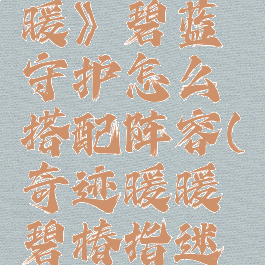 暖》碧蓝
守护怎么
搭配阵容(
奇迹暖暖
碧椿指迷